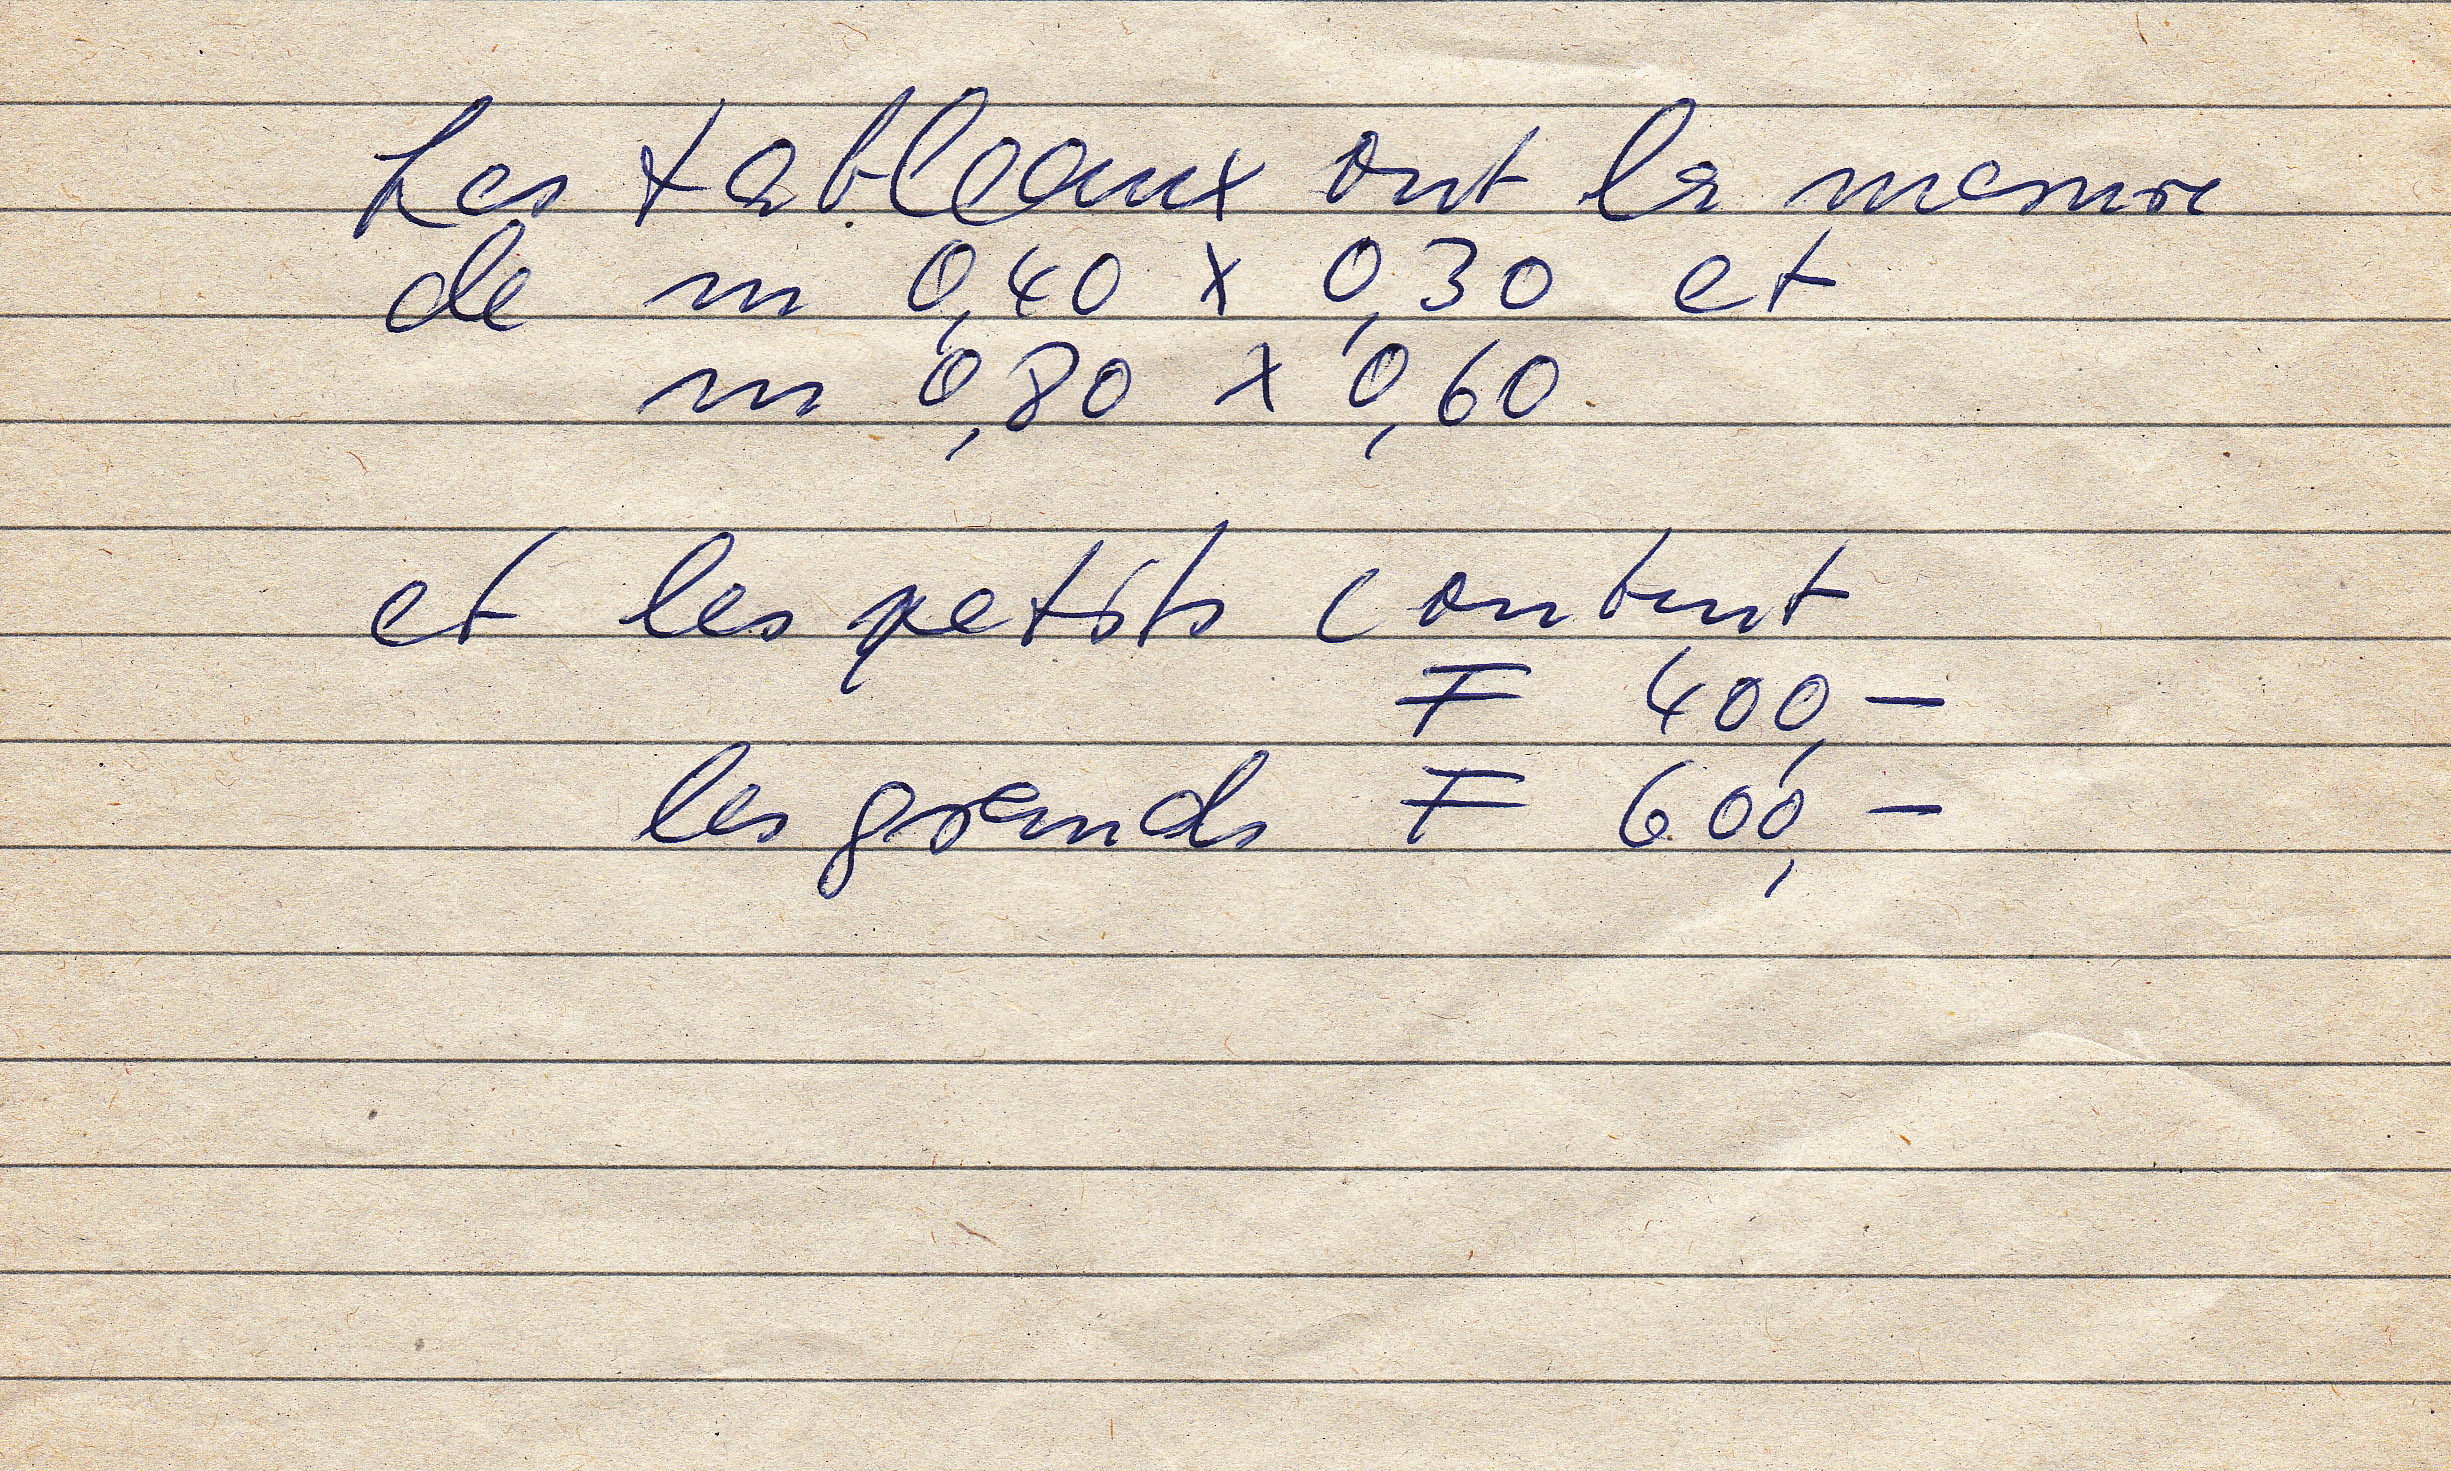 Les tableaux ont la mesure
de m 0,40 x 0,30 et
m 0,80 x 0,60.
et les petits content
F 400,—
les grands F 600,—